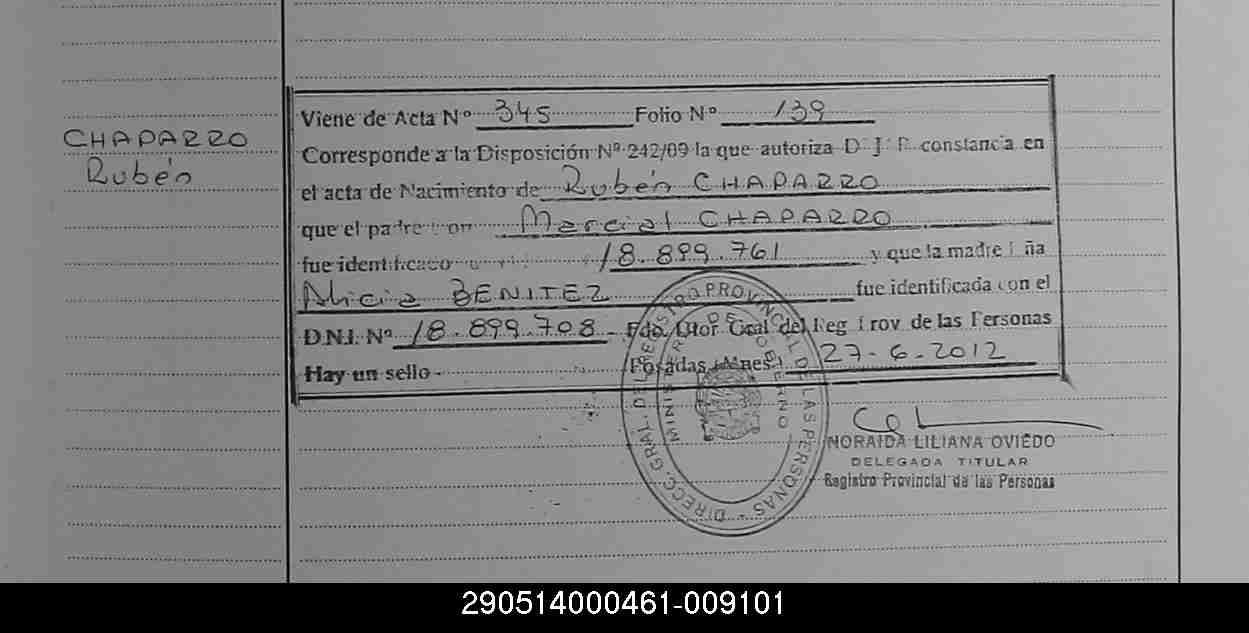 CHAPARRO
Rubén
Viene de Acta Nº 345 Folio Nº 139
Corresponde a la Disposición Nº 242/09 la que autoriza D J R constancia en
el acta de Nacimiento de Rubén CHAPARRO
que el padre con Marcial CHAPARRO
fue identificado 18.899.761 y que la madre ña
Alicia BENITEZ fue identificada con el
D.N.I. Nº 18.899.708 - Fdo. Dtor Gral del Reg Prov de las Personas
Hay un sello - Posadas Mnes 27-6-2012
DIRECC. GRAL. DEL REGISTRO PROVINCIAL DE LAS PERSONAS -
MINISTERIO DE GOBIERNO
NORAIDA LILIANA OVIEDO
DELEGADA TITULAR
Registro Provincial de las Personas
290514000461-009101